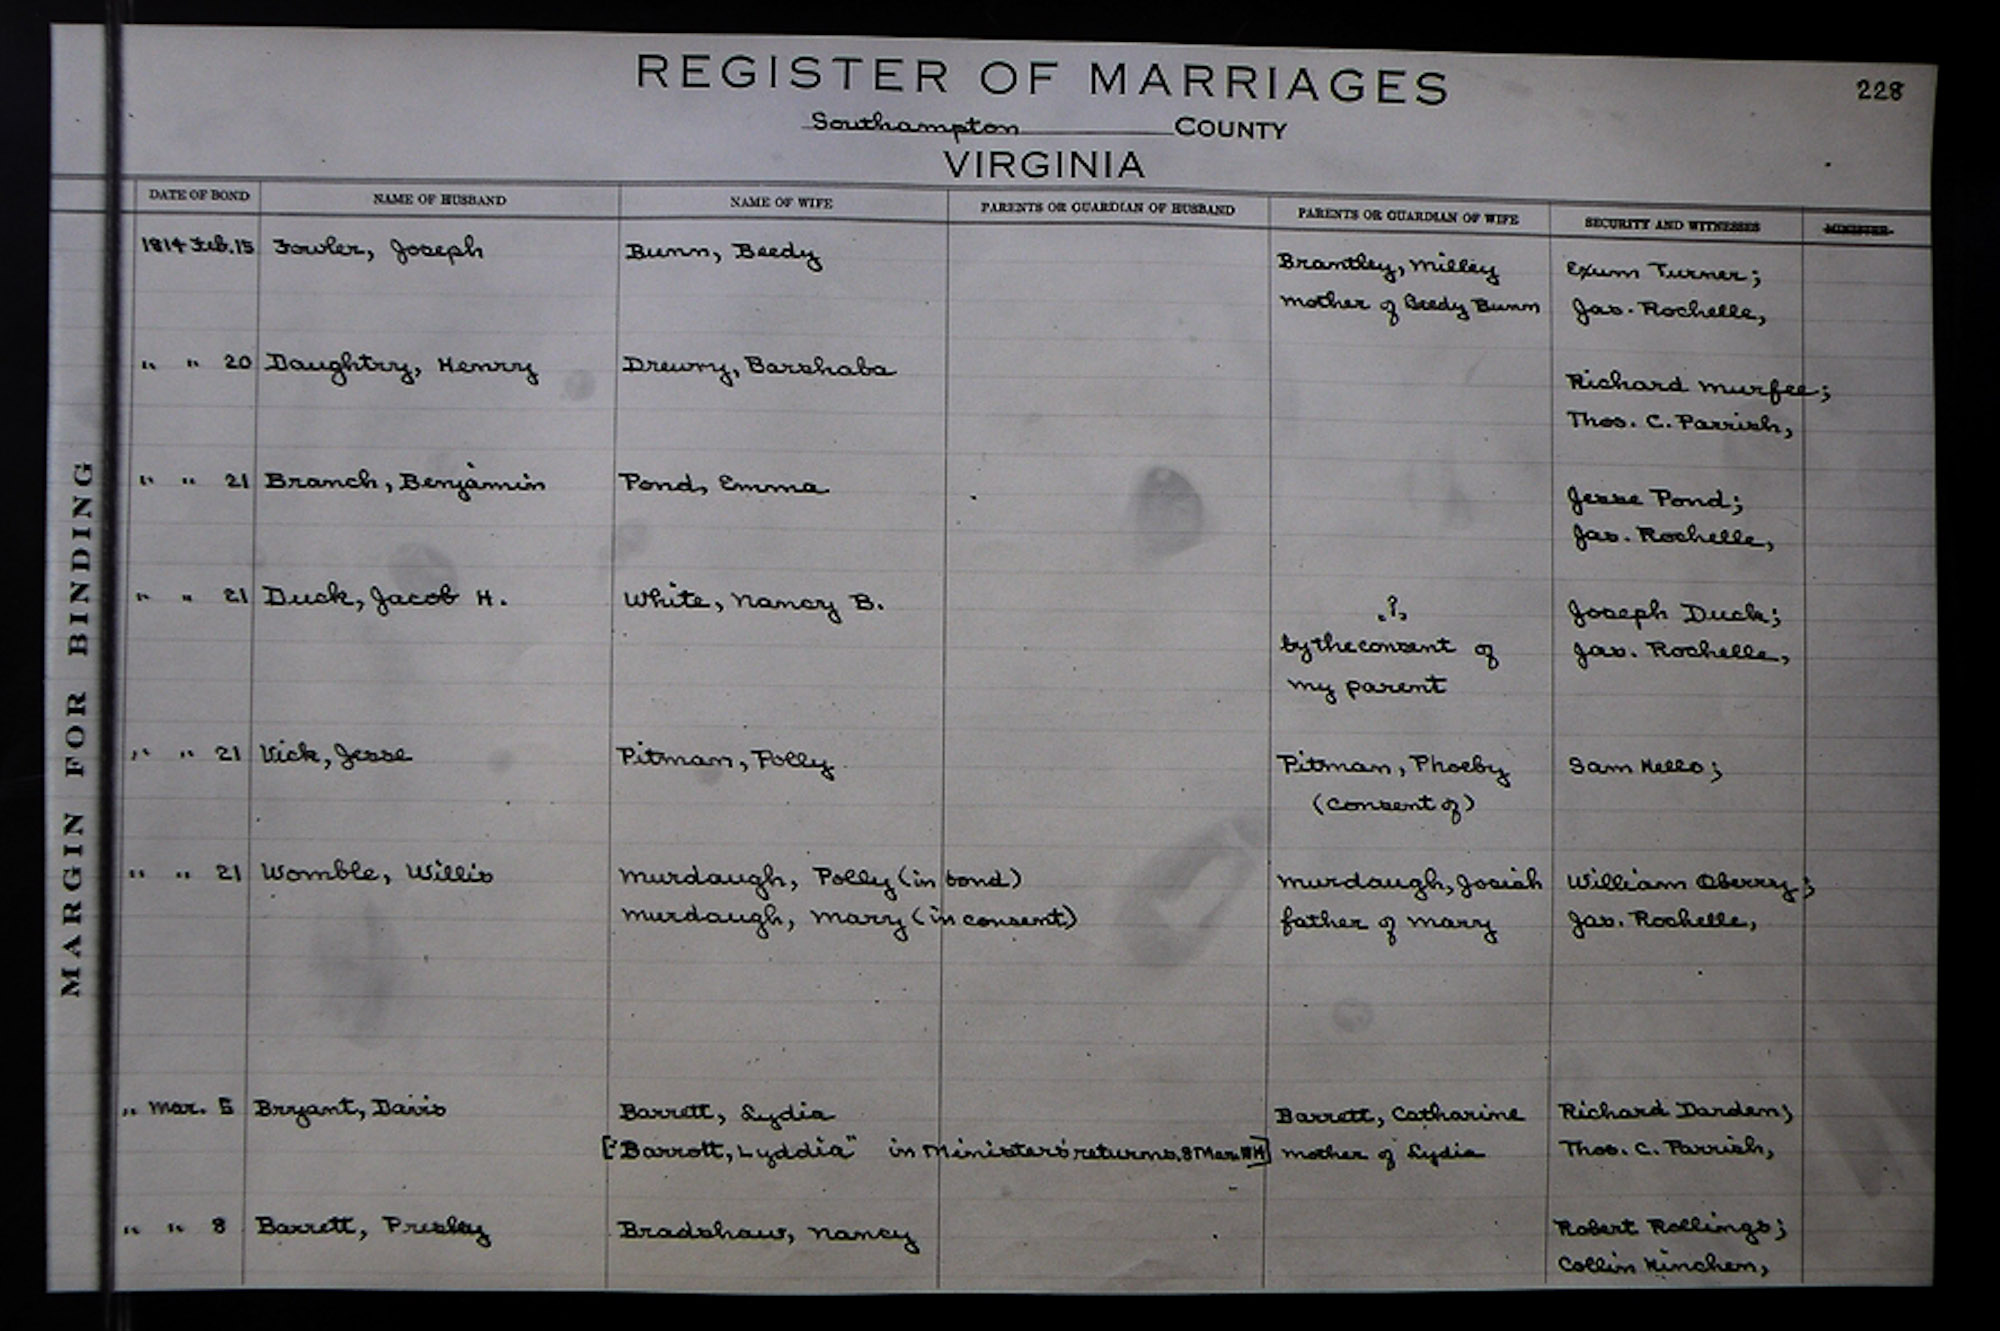 REGISTER OF MARRIAGES
228
Southampton COUNTY
VIRGINIA
DATE OF BOND NAME OF HUSBAND NAME OF WIFE PARENTS OR GUARDIAN OF HUSBAND PARENTS OR GUARDIAN OF WIFE SECURITY AND WITNESSES MINISTER
1814 Feb. 15 Fowler, Joseph Bunn, Beedy Brantley, Milley Exum Turner;
mother of Beedy Bunn Jas. Rochelle,
" " 20 Daughtry, Henry Drewry, Barshaba Richard Murfee;
Thos. C. Parrish,
" " 21 Branch, Benjamin Pond, Emma Jesse Pond;
Jas. Rochelle,
" " 21 Duck, Jacob H. White, Nancy B. "?" Joseph Duck;
by the consent of Jas. Rochelle,
my parent
" " 21 Vick, Jesse Pitman, Polly Pitman, Phoeby Sam Kello;
(consent of)
" " 21 Womble, Willis Murdaugh, Polly (in bond) Murdaugh, Josiah William Oberry;
Murdaugh, Mary (in consent) father of Mary Jas. Rochelle,
" Mar. 5 Bryant, Davis Barrett, Lydia Barrett, Catharine Richard Darden;
["Barrott, Lyddia" in Minister's returns, 8 Mar. 1814] mother of Lydia Thos. C. Parrish,
" " 8 Barrett, Presley Bradshaw, Nancy Robert Rollings;
Collin Kinchen,
MARGIN FOR BINDING